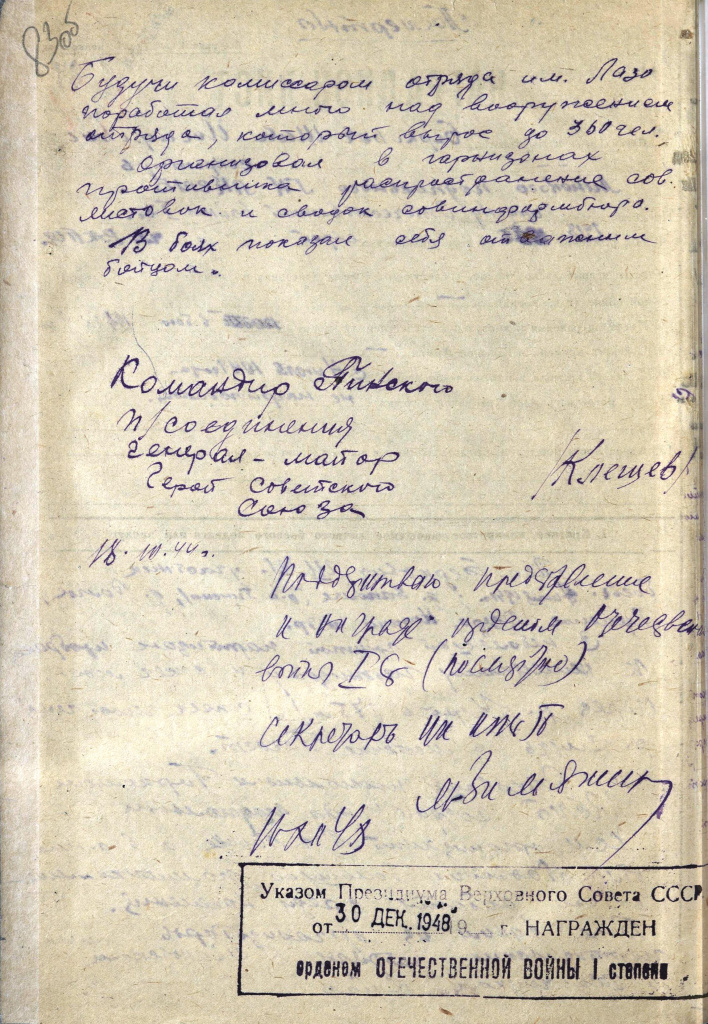 Будучи комиссаром отряда им. Лазо
поработал много над вооружением
отряда, который вырос до 360 чел.
Организовал в гарнизонах
противника распространение сов.
листовок и сводок совинформбюро.
В боях показал себя отважным
бойцом.
Командир Пинского
п/соединения
Генерал-майор
Герой Советского
Союза
/Клещев/
Поддерживаю представление
к награде орденом Отечествен
войны I (посмертно)
Секретарь ЦК
М. Зимянин
Указом Президиума Верховного Совета СССР
от 30 ДЕК. 1948 г. НАГРАЖДЕН
орденом ОТЕЧЕСТВЕННОЙ ВОЙНЫ I степени